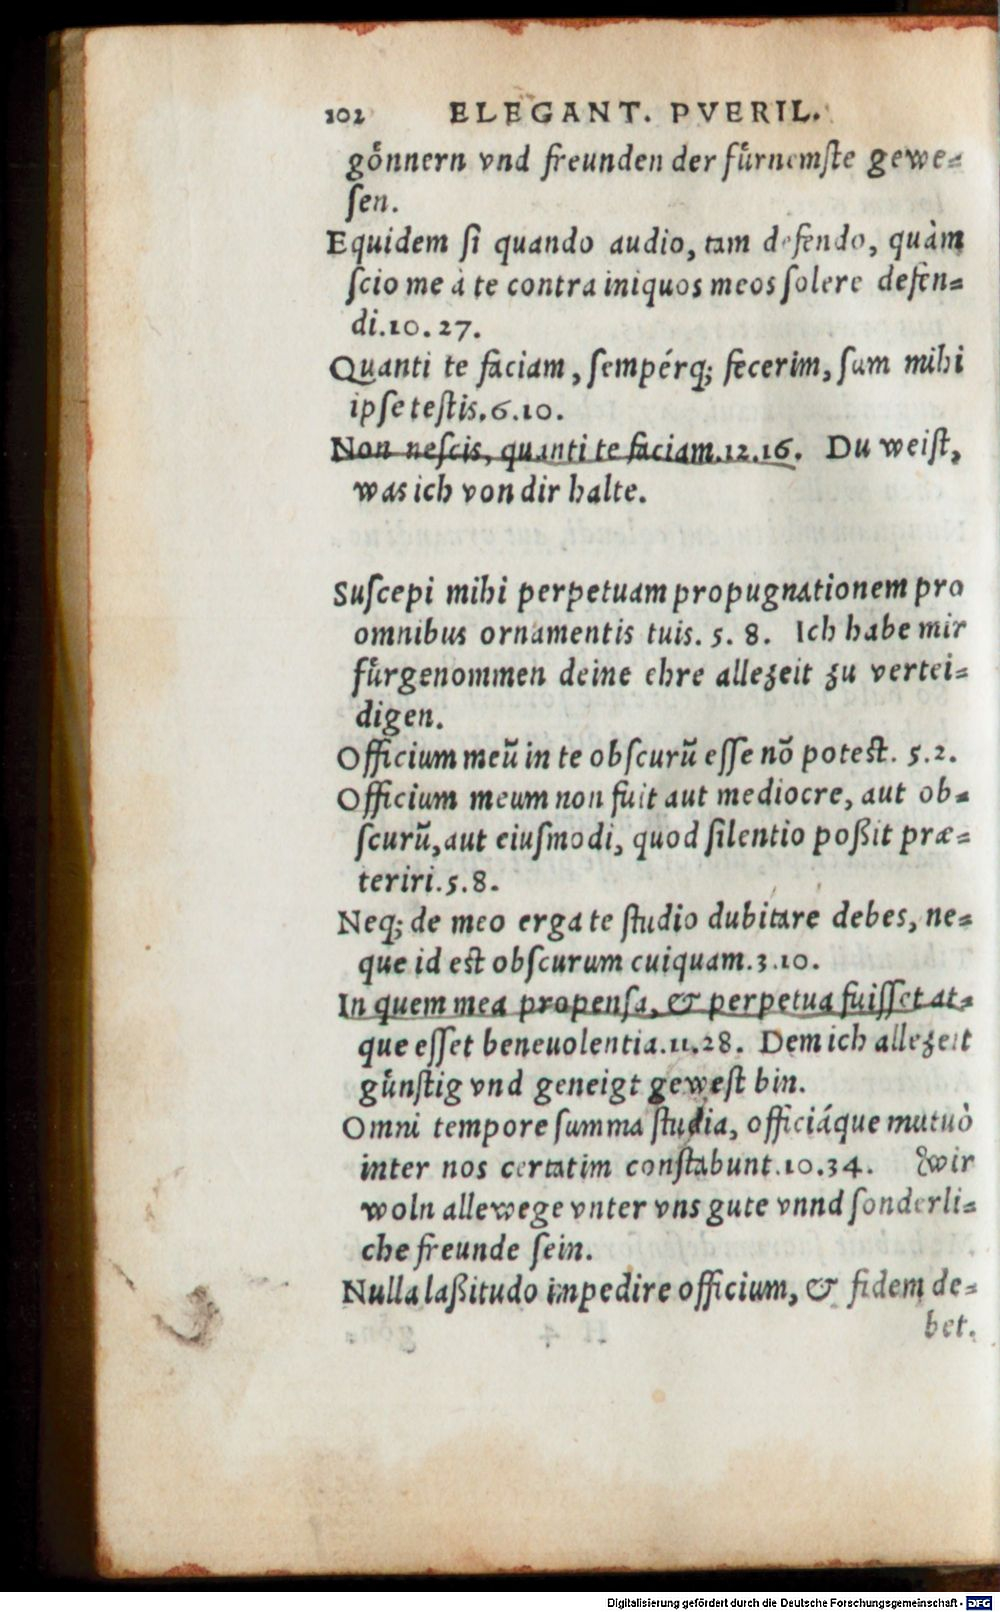 102 ELEGANT. PVERIL.
goͤnnern vnd freunden der fuͤrnemſte gewe⸗
ſen.
Equidem ſi quando audio, tam defendo, quàm
ſcio me à te contra iniquos meos ſolere defen⸗
di.10.27.
Quanti te faciam, ſempérq; fecerim, ſum mihi
ipſe teſtis.6.10.
Non neſcis, quanti te faciam.12.16. Du weiſt,
was ich von dir halte.
Suſcepi mihi perpetuam propugnationem pro
omnibus ornamentis tuis. 5. 8. Ich habe mir
fuͤrgenommen deine ehre allezeit zu vertei⸗
digen.
Officium meũ in te obſcurũ eſſe nõ poteſt. 5.2.
Officium meum non fuit aut mediocre, aut ob⸗
ſcurũ, aut eiuſmodi, quod ſilentio poßit præ⸗
teriri.5.8.
Neq; de meo erga te ſtudio dubitare debes, ne⸗
que id eſt obſcurum cuiquam.3.10.
In quem mea propenſa, & perpetua fuiſſet at⸗
que eſſet beneuolentia.11.28. Dem ich allezeit
guͤnſtig vnd geneigt geweſt bin.
Omni tempore ſumma ſtudia, officiáque mutuò
inter nos certatim conſtabunt.10.34. Wir
woln allewege vnter vns gute vnnd ſonderli⸗
che freunde ſein.
Nulla laßitudo impedire officium, & fidem de⸗
bet.
Digitalisierung gefördert durch die Deutsche Forschungsgemeinschaft - DFG